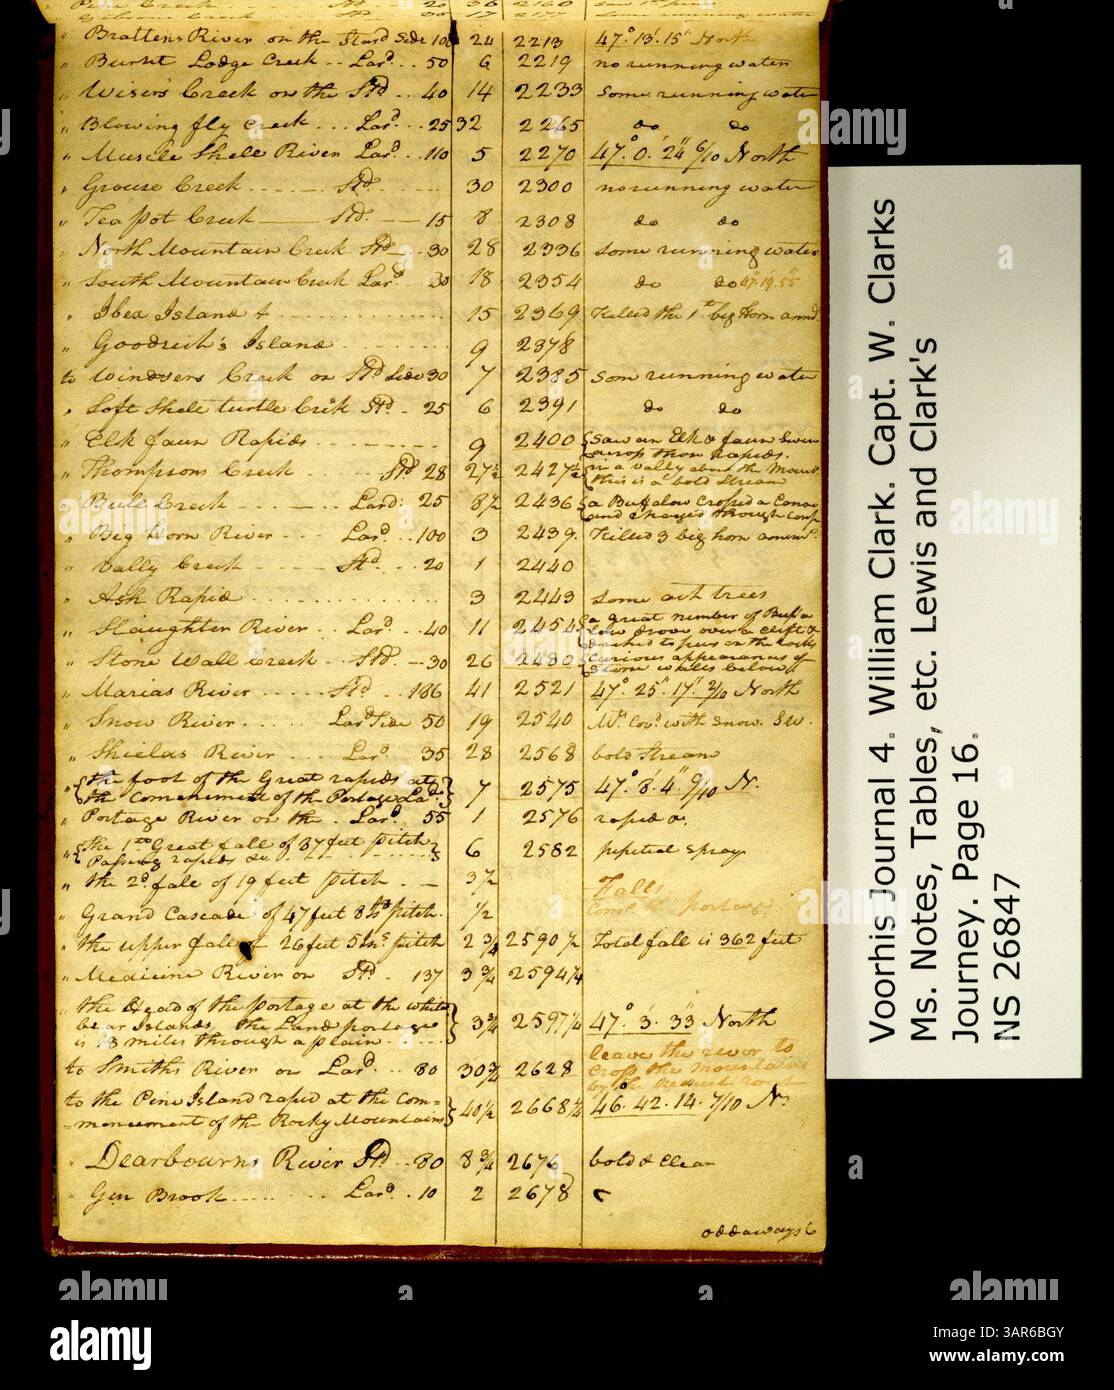 Pine Creek Std 20 36 2160
Gibsons Creek 30 17 2177 some running water
" Brattens River on the Stard Side 100 24 2213 47°. 13'. 15" North
" Burnt Lodge Creek .. Lard. .. 50 6 2219 no running water
" Wisers Creek on the Std .. 40 14 2233 Some running water
" Blowing fly Creek ... Lard. .. 25 32 2265 do do
" Muscle Shell River Lard. .. 110 5 2270 47°. 0'. 24" 6/10 North
" Grouse Creek ..... Std. .... 30 2300 no running water
" Tea pot Creek — Std. — 15 8 2308 do do
" North Mountain Creek Std — 30 28 2336 some running water
" South Mountain Creek Lard. 30 18 2354 do do 47°. 19. 55"
" Ibex Island & .......... 15 2369 Killed the 1st big Horn animl.
" Goodrich's Island ...... 9 2378
to Windsers Creek on Std Side 30 7 2385 som running water
" Soft Shell turtle Crek Std. - 25 6 2391 do do
" Elk faun Rapids ........ 9 2400 {Saw an Elk & faun Swim
across those rapids.
" Thompsons Creek Std 28 27½ 2427½ in a vally above the Mount
this is a bold Stream
" Bull Creek .. — Lard: 25 8½ 2436 {a Buffalow Crossed a Canoe
and Charged through Camp
" Big Horn River .. Lard. .. 100 3 2439. Killed 3 big horn animl.
" Vally Creek — Std. .. 20 1 2440
" Ash Rapid .......... 3 2443 some ash trees
" Slaughter River ... Lard. .. 40 11 2454 {a great number of Buffa
low drove over a clift &
dashed to pies on the rocks
" Stone Wall Creek .. Std. — 30 26 2480 {Curious appearances of
Stone walls below
" Marias River ...... Std ... 186 41 2521 47°. 25'. 17". 2/10 North
" Snow River ..... Lard Side 50 19 2540 Mts. Covd. with Snow. S W.
" Shielas River Lard. 35 28 2568 bold Stream
" {the foot of the Great rapids at
the Comencment of the Portage Lad.} 7 2575 47°. 8'. 4". 9/10 N.
" Portage River on the . Lard. 55 1 2576 rapid &.
" {the 1st Great fall of 87 feet pitch
Passing rapids &c .......} 6 2582 perpetial Spray
" the 2d. fale of 19 feet pitch .. — 3½ Falls
Grand Cascade of 47 feet 8 Ins pitch. ½ portage
" the upper fall of 26 feet 5 Ins pitch 2¾ 2590½ Total fall is 362 feet
" Medicine River on Std. 137 3¾ 2594¼
" the Head of the portage at the white
bear Islands, the Land portage
is 18 miles through a plain ....} 3¾ 2597¼ 47° 3'. 33" North
to Smiths River on Lard. .. 80 30¾ 2628 leave the river to
Cross the Mountains
by the nearest rout
to the Pine Island rapid at the Com=
mencement of the Rocky Mountains} 40½ 2668¼ 46°. 42. 14. 7/10 N.
" Dearbourns River Std. .. 80 8¾ 2676 bold & Clear
" Gun Brook ...... Lard. 10 2 2678
Voorhis Journal 4. William Clark. Capt. W. Clarks
Ms. Notes, Tables, etc. Lewis and Clark's
Journey. Page 16.
NS 26847
alamy
Image ID: 3AR6BGY
www.alamy.com